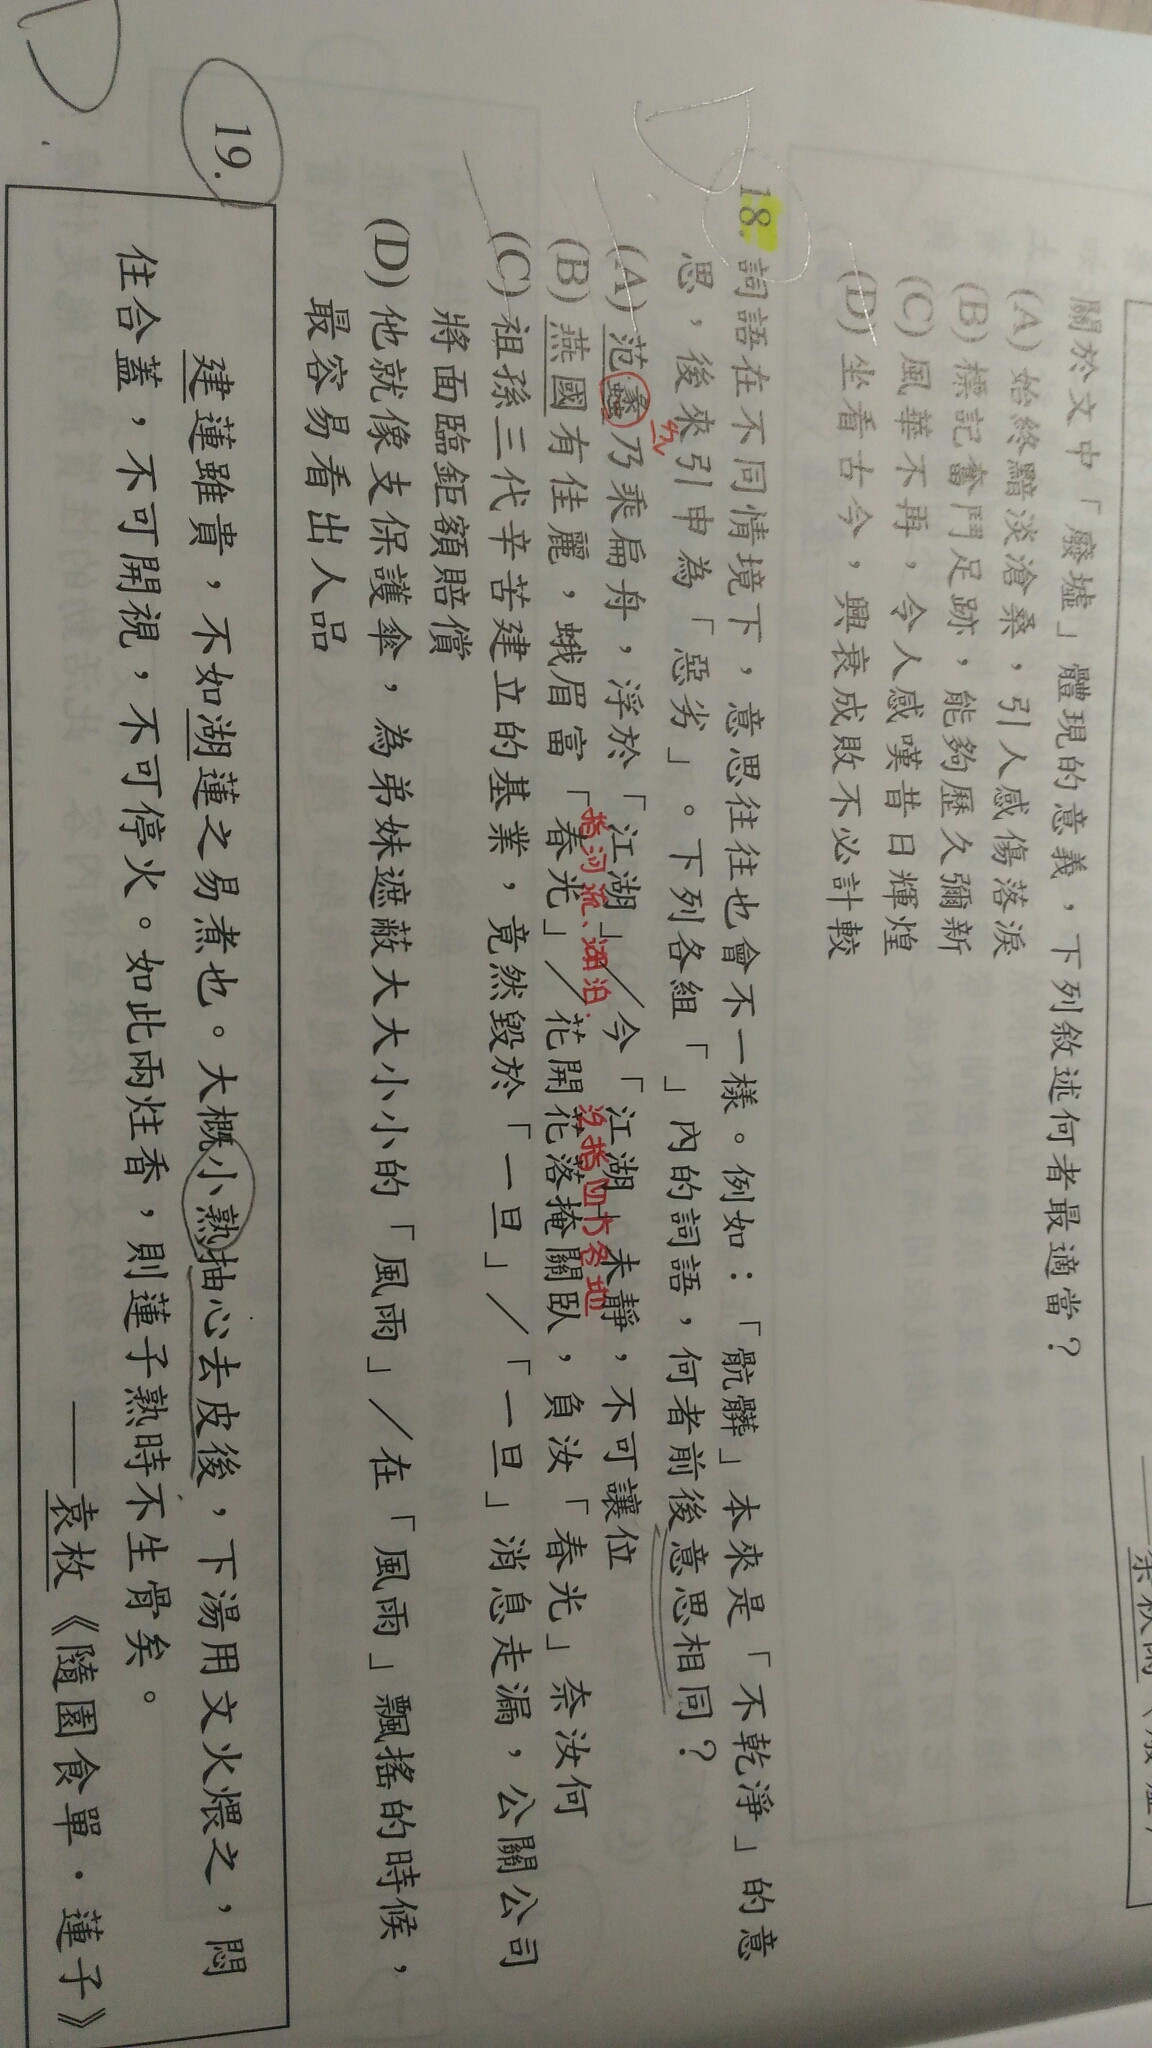 ——余秋雨〈廢墟〉
關於文中「廢墟」體現的意義，下列敘述何者最適當？
(A)始終黯淡滄桑，引人感傷落淚
(B)標記奮鬥足跡，能夠歷久彌新
(C)風華不再，令人感嘆昔日輝煌
(D)坐看古今，興衰成敗不必計較
18.詞語在不同情境下，意思往往也會不一樣。例如：「骯髒」本來是「不乾淨」的意
思，後來引申為「惡劣」。下列各組「 」內的詞語，何者前後意思相同？
ㄌㄧˇ
(A)范蠡乃乘扁舟，浮於「江湖」／今「江湖」未靜，不可讓位
指河流、湖泊. 泛指四方各地
(B)燕國有佳麗，蛾眉富「春光」／花開花落掩關臥，負汝「春光」奈汝何
(C)祖孫三代辛苦建立的基業，竟然毀於「一旦」／「一旦」消息走漏，公關公司
將面臨鉅額賠償
(D)他就像支保護傘，為弟妹遮蔽大大小小的「風雨」／在「風雨」飄搖的時候，
最容易看出人品
D
19.
建蓮雖貴，不如湖蓮之易煮也。大概小熟抽心去皮後，下湯用文火煨之，悶
住合蓋，不可開視，不可停火。如此兩炷香，則蓮子熟時不生骨矣。
——袁枚《隨園食單．蓮子》
D